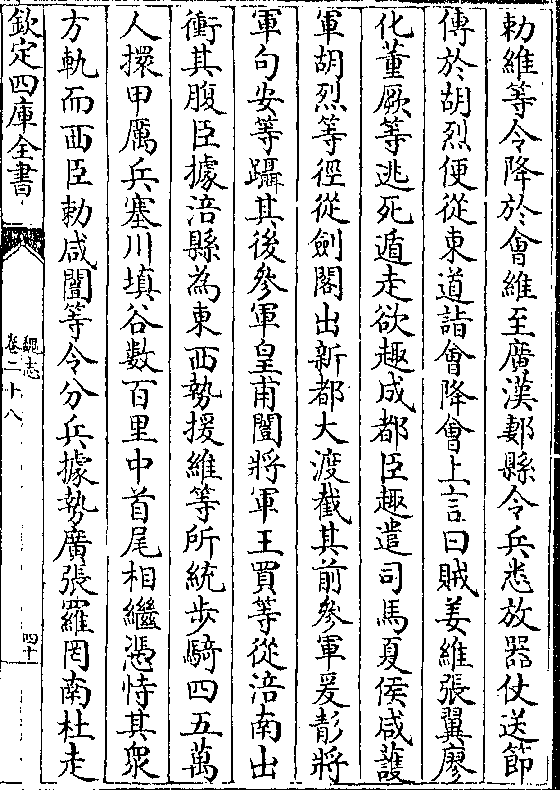 勅維等令降於會維至廣漢郪縣令兵悉放器仗送節
傳於胡烈便從東道詣會降會上言曰賊姜維張翼廖
化董厥等逃死遁走欲趣成都臣趣遣司馬夏侯咸護
軍胡烈等徑從劍閣出新都大渡截其前參軍爰𩇕將
軍句安等躡其後參軍皇甫闓將軍王買等從涪南出
衝其腹臣據涪縣為東西勢援維等所統步騎四五萬
人擐甲厲兵塞川填谷數百里中首尾相繼憑恃其衆
方軌而西臣勅咸闓等令分兵據勢廣張羅罔南杜走
欽定四庫全書
魏志
卷二十八
四十